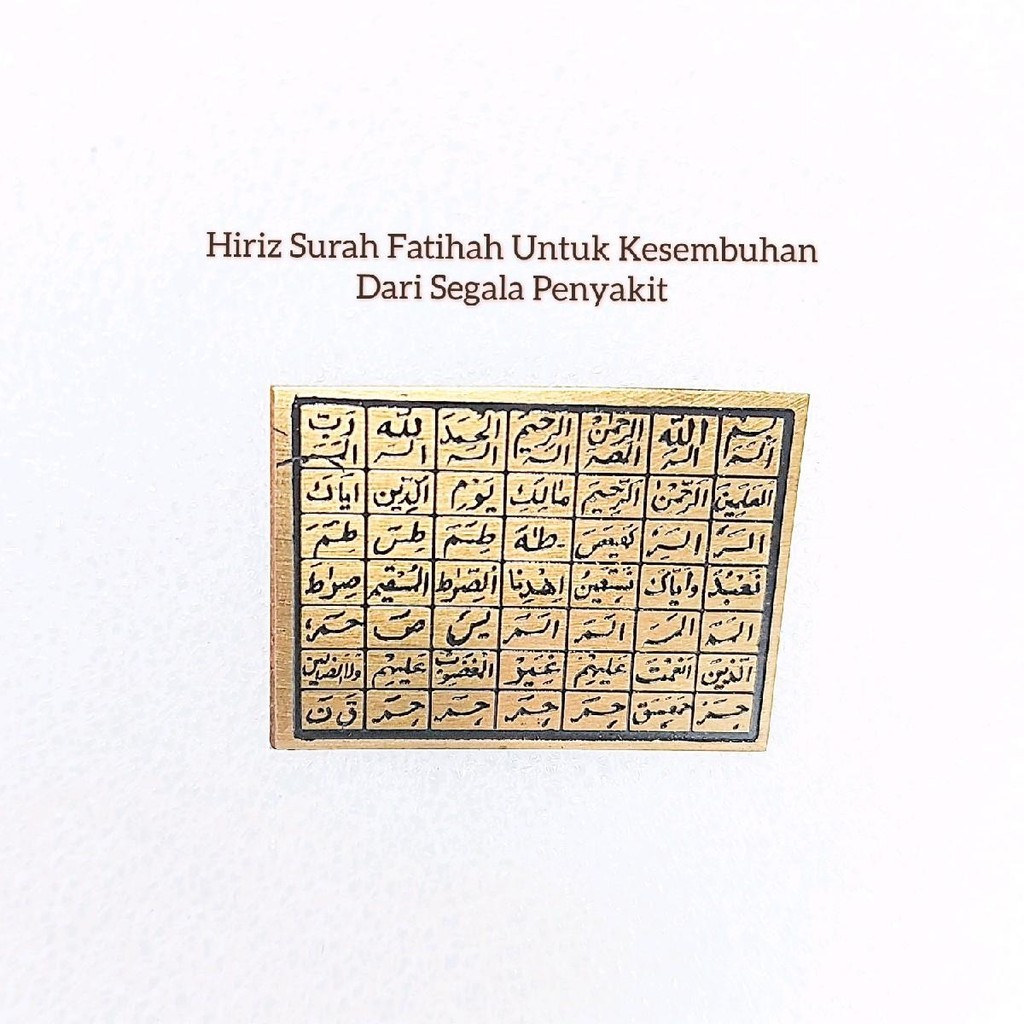 Hiriz Surah Fatihah Untuk Kesembuhan
Dari Segala Penyakit
بسم الله الرحمن الرحيم الحمد لله رب
الم الم المص الر الر الر المر
العلمين الرحمن الرحيم مالك يوم الدين اياك
الر الر كهيعص طه طسم طس طسم
نعبد واياك نستعين اهدنا الصراط المستقيم صراط
الم الم الم الم يس ص حم
الذين انعمت عليهم غير المغضوب عليهم ولا الضالين
حم حمعسق حم حم حم حم ق ن